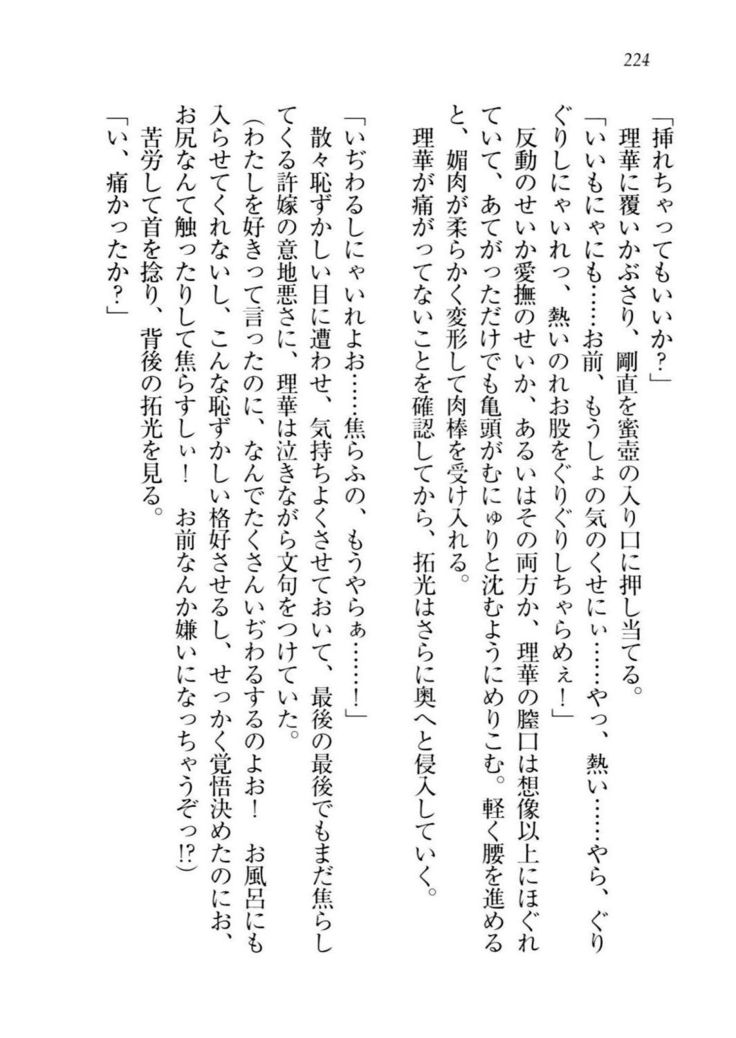 224
「挿れちゃってもいいか？」
　理華に覆いかぶさり、剛直を蜜壺の入り口に押し当てる。
「いいもにゃにも……お前、もうしょの気のくせにぃ……やっ、熱い……やら、ぐり
ぐりしにゃいれっ、熱いのれお股をぐりぐりしちゃらめぇ！」
　反動のせいか愛撫のせいか、あるいはその両方か、理華の膣口は想像以上にほぐれ
ていて、あてがっただけでも亀頭がむにゅりと沈むようにめりこむ。軽く腰を進める
と、媚肉が柔らかく変形して肉棒を受け入れる。
　理華が痛がってないことを確認してから、拓光はさらに奥へと侵入していく。
「いぢわるしにゃいれよお……焦らふの、もうやらぁ……！」
　散々恥ずかしい目に遭わせ、気持ちよくさせておいて、最後の最後でもまだ焦らし
てくる許嫁の意地悪さに、理華は泣きながら文句をつけていた。
（わたしを好きって言ったのに、なんでたくさんいぢわるするのよお！　お風呂にも
入らせてくれないし、こんな恥ずかしい格好させるし、せっかく覚悟決めたのにお、
お尻なんて触ったりして焦らすしぃ！　お前なんか嫌いになっちゃうぞっ!?）
　苦労して首を捻り、背後の拓光を見る。
「い、痛かったか？」